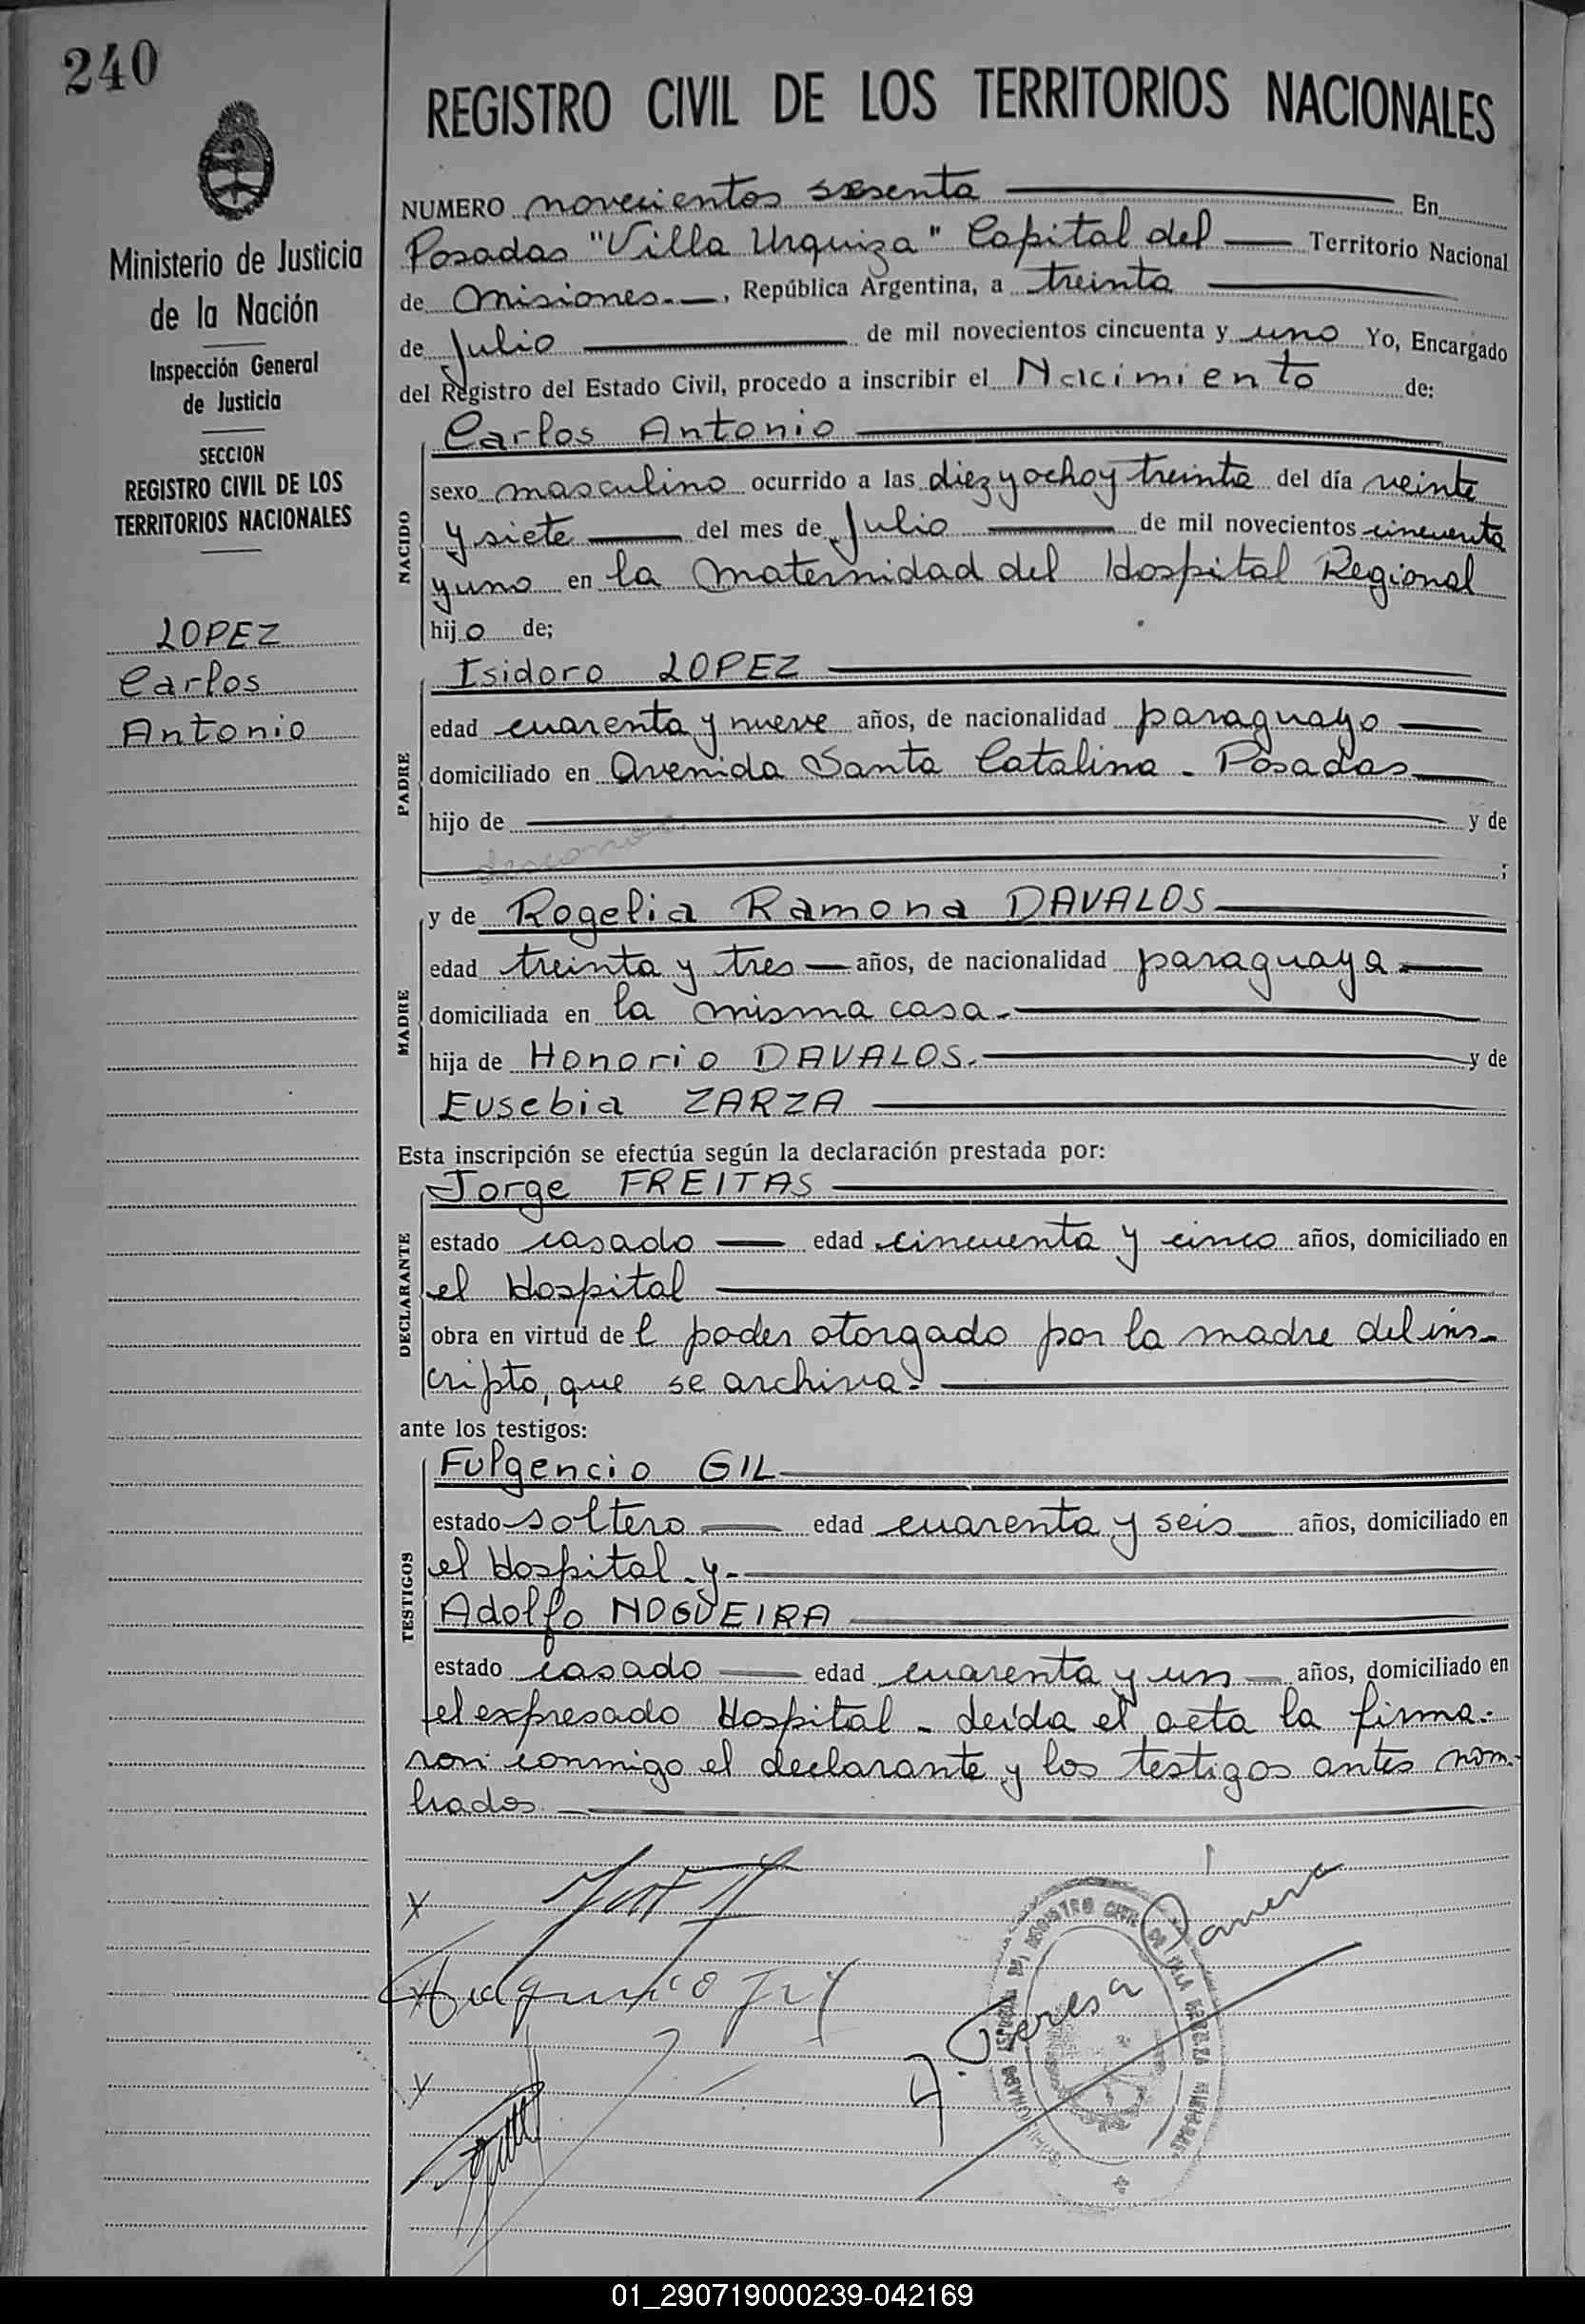 240
REGISTRO CIVIL DE LOS TERRITORIOS NACIONALES
Ministerio de Justicia
de la Nación
Inspección General
de Justicia
SECCION
REGISTRO CIVIL DE LOS
TERRITORIOS NACIONALES
LOPEZ
Carlos
Antonio
NUMERO novecientos sesenta En
Posadas "Villa Urquiza" Capital del Territorio Nacional
de Misiones.—, República Argentina, a treinta
de Julio de mil novecientos cincuenta y uno Yo, Encargado
del Registro del Estado Civil, procedo a inscribir el Nacimiento de:
NACIDO
Carlos Antonio
sexo masculino ocurrido a las diez y ocho y treinta del día veinte
y siete del mes de Julio de mil novecientos cincuenta
y uno en la Maternidad del Hospital Regional
hijo de;
PADRE
Isidoro LOPEZ
edad cuarenta y nueve años, de nacionalidad paraguayo
domiciliado en Avenida Santa Catalina - Posadas
hijo de y de
;
MADRE
y de Rogelia Ramona DAVALOS
edad treinta y tres años, de nacionalidad paraguaya
domiciliada en la misma casa.
hija de Honorio DAVALOS. y de
Eusebia ZARZA
Esta inscripción se efectúa según la declaración prestada por:
DECLARANTE
Jorge FREITAS
estado casado edad cincuenta y cinco años, domiciliado en
el Hospital
obra en virtud de l poder otorgado por la madre del ins-
cripto, que se archiva.
ante los testigos:
TESTIGOS
Fulgencio GIL
estado soltero edad cuarenta y seis años, domiciliado en
el Hospital - y -
Adolfo NOGUEIRA
estado casado edad cuarenta y un años, domiciliado en
el expresado Hospital - Leída el acta la firma-
ron conmigo el declarante y los testigos antes nom-
brados.
Fulgencio Gil
A. Teresa
01_290719000239-042169